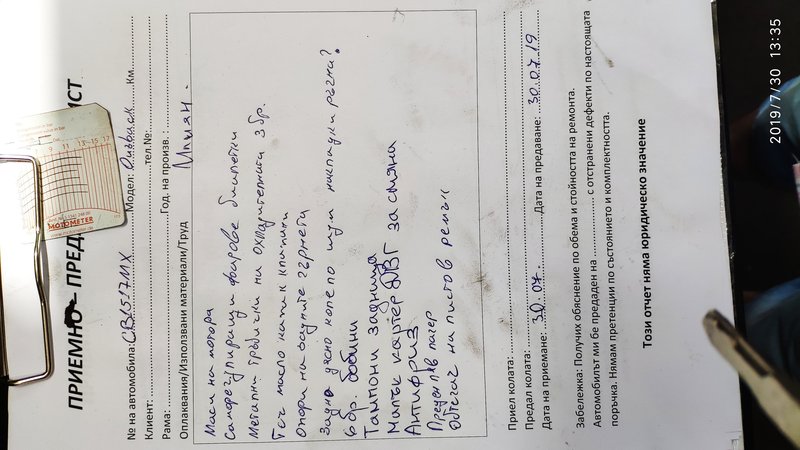 ПРИЕМНО ПРЕД ИСТ
№ на автомобила: СВ1517МХ Модел: Км
Клиент: тел.№:
Рама: Год. на произв. :
Оплаквания/Използвани материали/Труд
Масл на мотора
Саморегулиращи фарове биалетки
Метални тръбички на охладителната 3 бр.
Теч масло капак клапани
Опори на ауспуха гърнета
Задно дясно колело шум накладки ръчна?
6 бр. бобини
Тампони задница
Малък картер ДВГ за смяна
Антифриз
Преден ляв лагер
Обтегач на пистов ремък
Приел колата:
Предал колата:
Дата на приемане: 30.07. Дата на предаване: 30.07.19
Забележка: Получих обяснение по обема и стойността на ремонта.
Автомобилът ми бе предаден на с отстранени дефекти по настоящата
поръчка. Нямам претенции по състоянието и комплектността.
Този отчет няма юридическо значение
MOTOMETER
2019/7/30 13:35